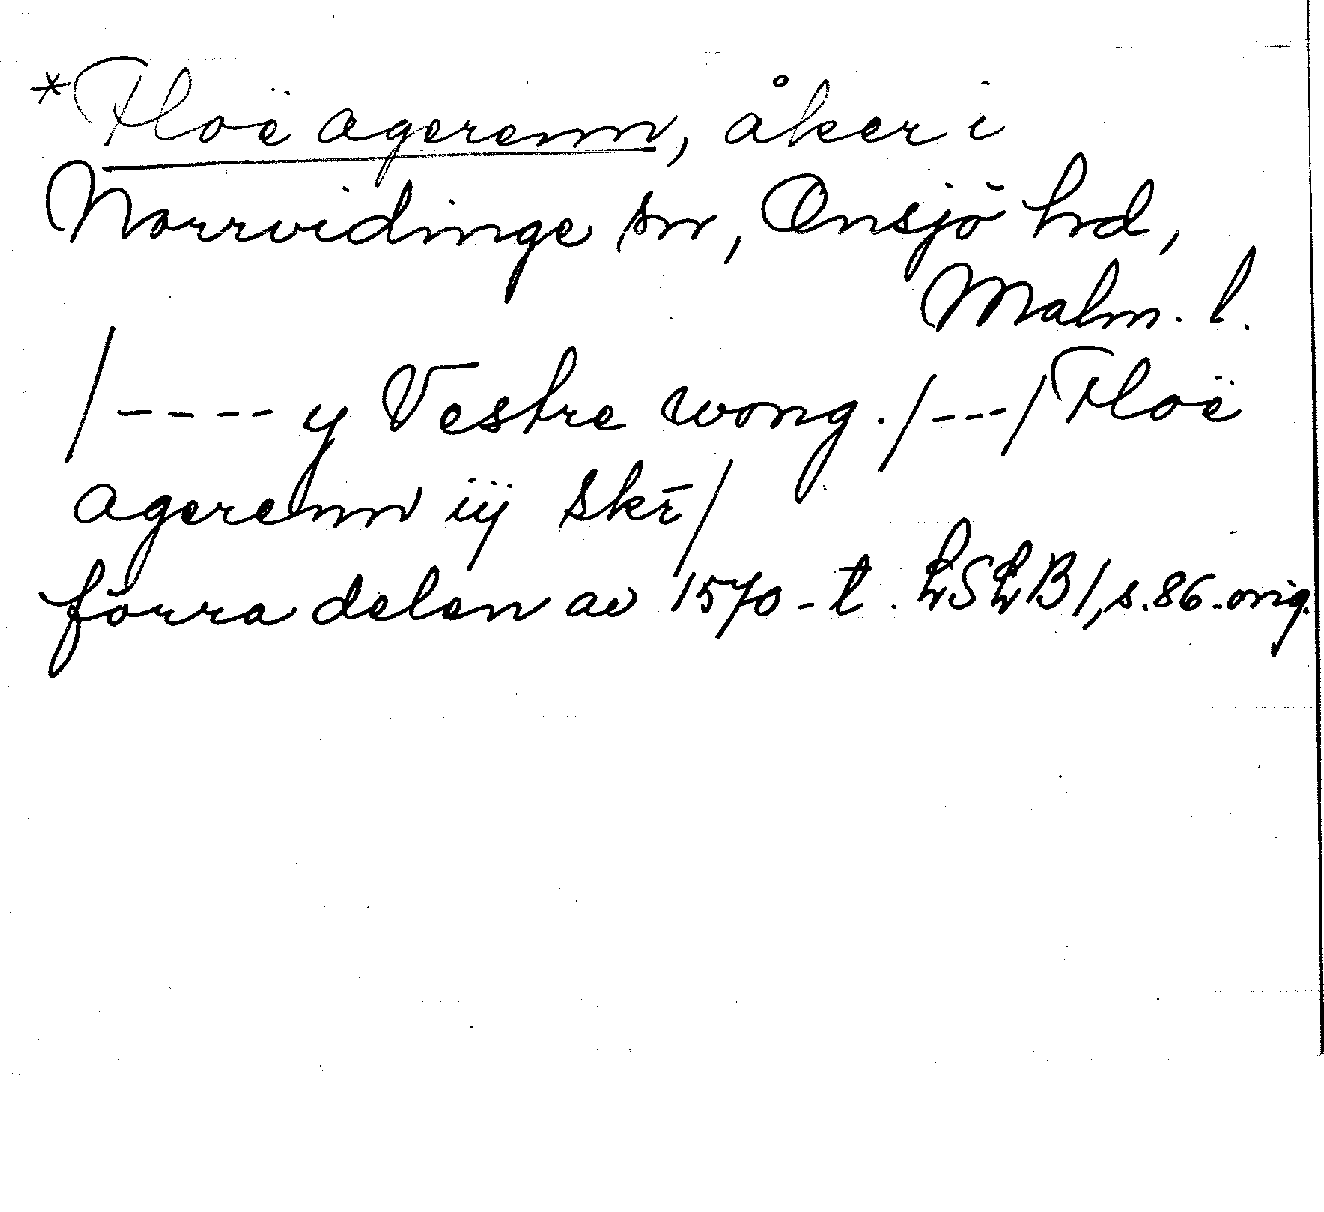 *Floë agerenn, åker i
Norrvidinge sn, Onsjö hrd,
Malm. l.
/---- y Vestre wong. /---/ Floë
agerenn iij skē/
förra delen av 1570-t. LSLB 1, s. 86. orig.